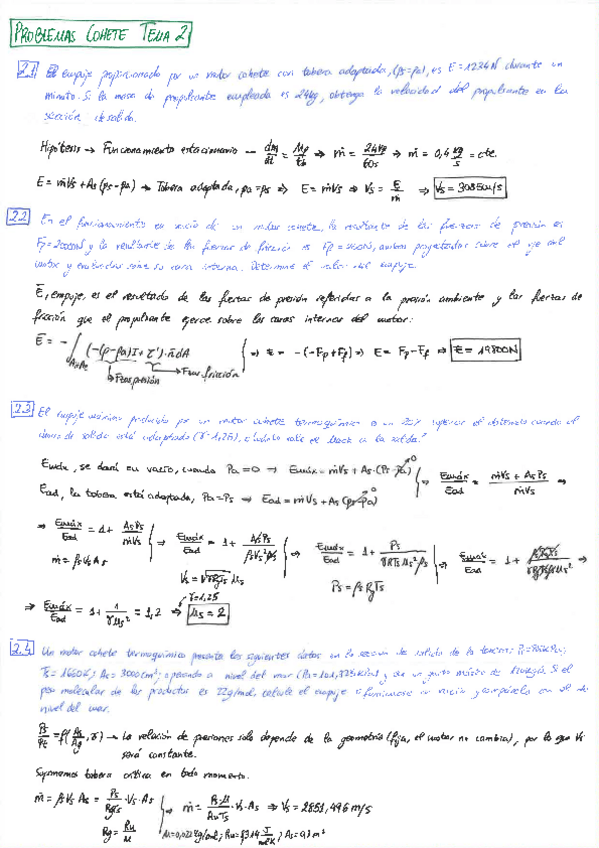 PROBLEMAS COHETE TEMA 2
2.1 El empuje proporcionado por un motor cohete con tobera adaptada, (ps=pa), es E=1234N durante un
minuto. Si la masa de propulsante empleada es 24kg, obtenga la velocidad del propulsante en la
sección de salida.
Hipótesis → Funcionamiento estacionario — dm/dt = Mg/tb ⇒ ṁ = 24kg/60s ⇒ ṁ = 0,4 kg/s = cte.
E = ṁVs + As(ps-pa) → Tobera adaptada, pa=ps ⇒ E = ṁVs ⇒ Vs = E/ṁ ⇒ Vs = 3085m/s
2.2 En el funcionamiento en vacío de un motor cohete, la resultante de las fuerzas de presión es
y la resultante de las fuerzas de fricción es
motor y evaluadas sobre su cara interna. Determine el valor del empuje.
E, empuje, es el resultado de las fuertas de presión referidas a la presión ambiente y las fuertas de
fricción que el propulsante ejerce sobre las caras internas del motor:
E = - ∫ (-(p-pa)I + τ')·n dA ⇒ E = -(-Fp+Ff) ⇒ E = Fp-Ff ⇒ E = 19800N
Fzas presión Fzas fricción
2.3 El empuje máximo producido por un motor cohete termoquímico es un 20% superior al obtenido cuando el
de salida está adaptado (γ=1,25), ¿cuánto vale el Mach a la salida?
Emáx, se dará en vacío, cuando Pa=0 ⇒ Emáx = ṁVs + As·(Ps-Pa) 0 ⇒ Emáx/Ead = (ṁVs + AsPs)/ṁVs ⇒
Ead, la tobera está adaptada, Pa=Ps ⇒ Ead = ṁVs + As(ps-pa) 0
⇒ Emáx/Ead = 1 + AsPs/ṁVs ⇒ Emáx/Ead = 1 + AsPs/ρsVs²As ⇒ Emáx/Ead = 1 + Ps/γRTsMs²ρs ⇒ Emáx/Ead = 1 + ρsRgTs/γRgTsρsMs² ⇒
ṁ = ρsVsAs Vs = √γRgTs Ms Ps = ρsRgTs
⇒ Emáx/Ead = 1 + 1/γMs² = 1,2 ⇒ γ=1,25 Ms = 2
2.4 Un motor cohete termoquímico presenta los siguientes datos en la sección de salida de la tobera:
Ts=1660K; As=3000cm²; operando a nivel del mar (Pa=101,325kPa) y con un gasto másico de Si el
peso molecular de los productos es 22g/mol, calcule el empuje si funcionase en vacío y compárelo con el de
nivel del mar.
La relación de presiones solo depende de la geometría (fija, el motor no cambia), por lo que Vs
será constante.
Suponemos tobera crítica en todo momento.
ṁ = ρsVsAs = Ps/RgTs·Vs·As ⇒ ṁ = Ps·M/RuTs·Vs·As ⇒ Vs = 2853,496 m/s
Rg = Ru/M M=0,022kg/mol; Ru=8,314 J/molK; As=0,3m²